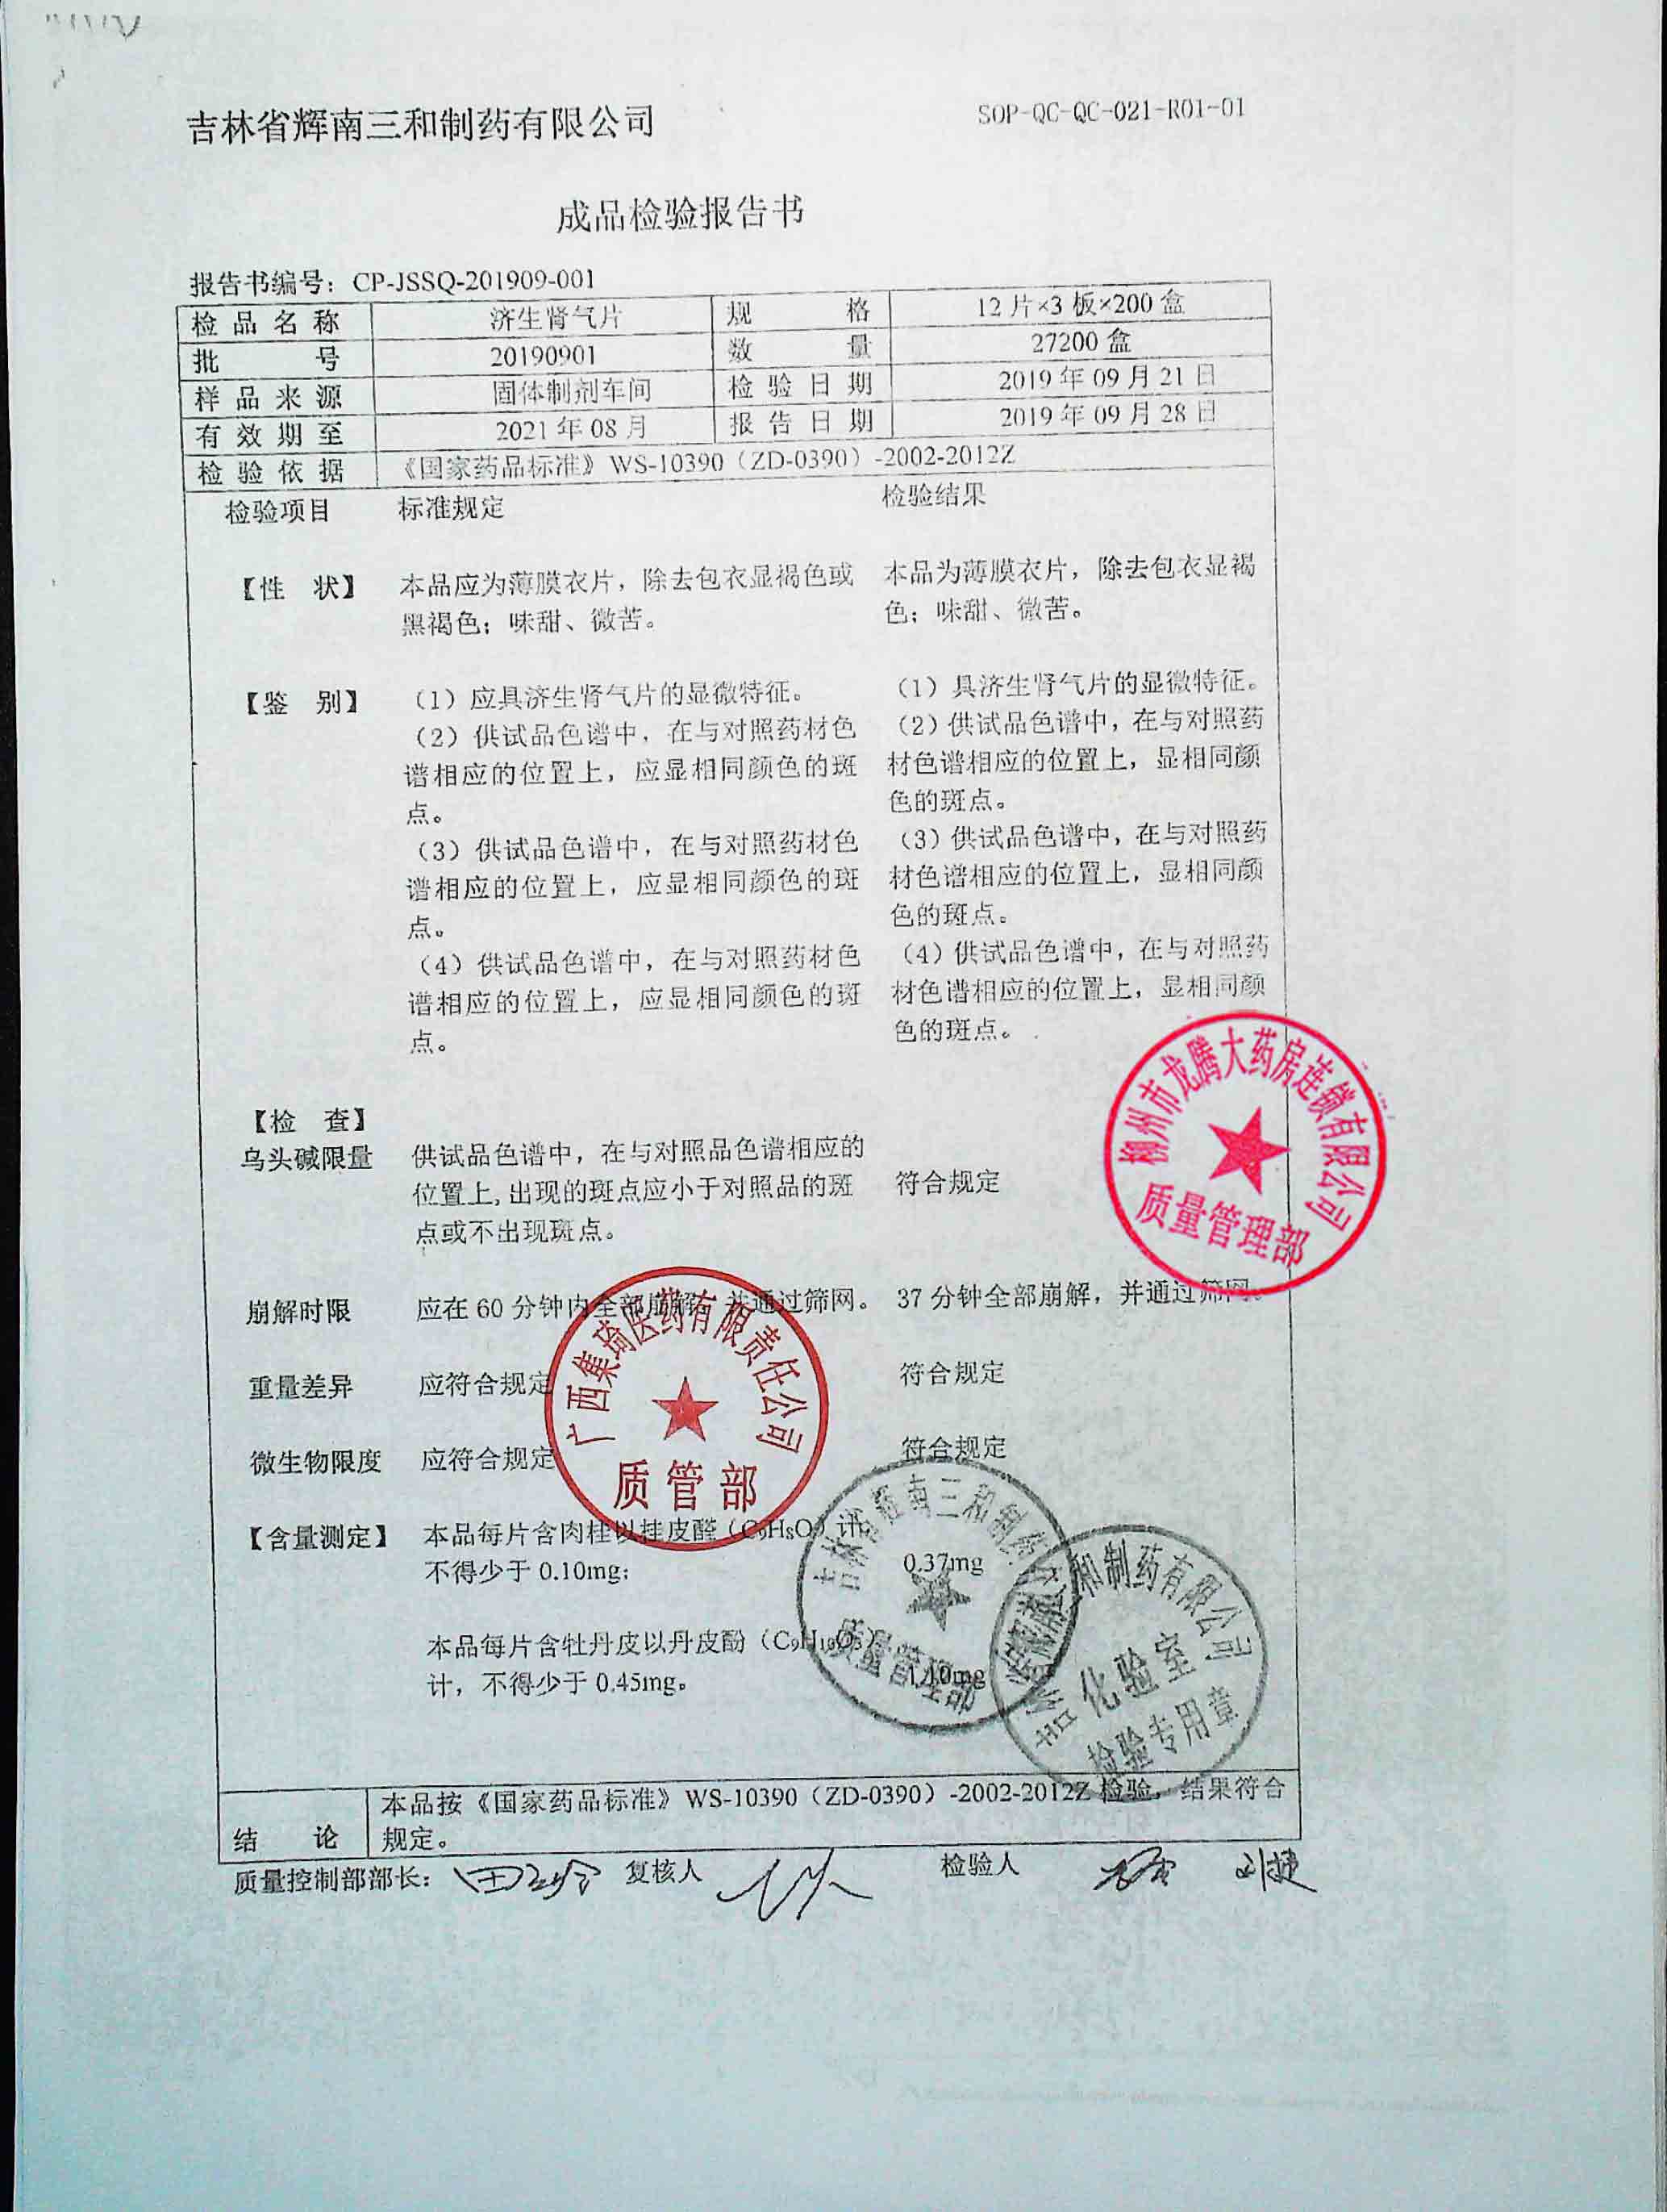 吉林省辉南三和制药有限公司
SOP-QC-QC-021-R01-01
成品检验报告书
报告书编号：CP-JSSQ-201909-001
检品名称 济生肾气片 规格 12片×3板×200盒
批号 20190901 数量 27200盒
样品来源 固体制剂车间 检验日期 2019年09月21日
有效期至 2021年08月 报告日期 2019年09月28日
检验依据 《国家药品标准》WS-10390（ZD-0390）-2002-2012Z
检验项目 标准规定 检验结果
【性 状】 本品应为薄膜衣片，除去包衣显褐色或 本品为薄膜衣片，除去包衣显褐
黑褐色；味甜、微苦。 色；味甜、微苦。
【鉴 别】 （1）应具济生肾气片的显微特征。 （1）具济生肾气片的显微特征。
（2）供试品色谱中，在与对照药材色 （2）供试品色谱中，在与对照药
谱相应的位置上，应显相同颜色的斑 材色谱相应的位置上，显相同颜
点。 色的斑点。
（3）供试品色谱中，在与对照药材色 （3）供试品色谱中，在与对照药
谱相应的位置上，应显相同颜色的斑 材色谱相应的位置上，显相同颜
点。 色的斑点。
（4）供试品色谱中，在与对照药材色 （4）供试品色谱中，在与对照药
谱相应的位置上，应显相同颜色的斑 材色谱相应的位置上，显相同颜
点。 色的斑点。
柳州市龙腾大药房连锁有限公司
质量管理部
【检 查】
乌头碱限量 供试品色谱中，在与对照品色谱相应的
位置上,出现的斑点应小于对照品的斑 符合规定
点或不出现斑点。
崩解时限 应在60分钟内全部崩解，并通过筛网。 37分钟全部崩解，并通过筛网。
重量差异 应符合规定 符合规定
微生物限度 应符合规定 符合规定
广西集琦医药有限责任公司
质管部
【含量测定】 本品每片含肉桂以桂皮醛（C₉H₈O）计，
不得少于0.10mg； 0.37mg
本品每片含牡丹皮以丹皮酚（C₉H₁₀O₃）
计，不得少于0.45mg。 1.10mg
吉林省辉南三和制药有限公司
质量管理部
吉林省辉南三和制药有限公司
化验室
检验专用章
结论 本品按《国家药品标准》WS-10390（ZD-0390）-2002-2012Z检验，结果符合
规定。
质量控制部部长： 复核人 检验人 刘捷